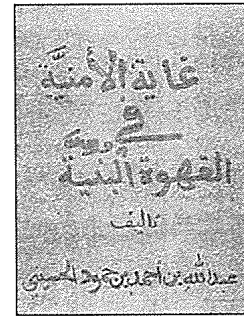 غاية الأمنية
في
القهوة البنية
تاليف
عبدالله بن أحمد بن حمود الحسيني